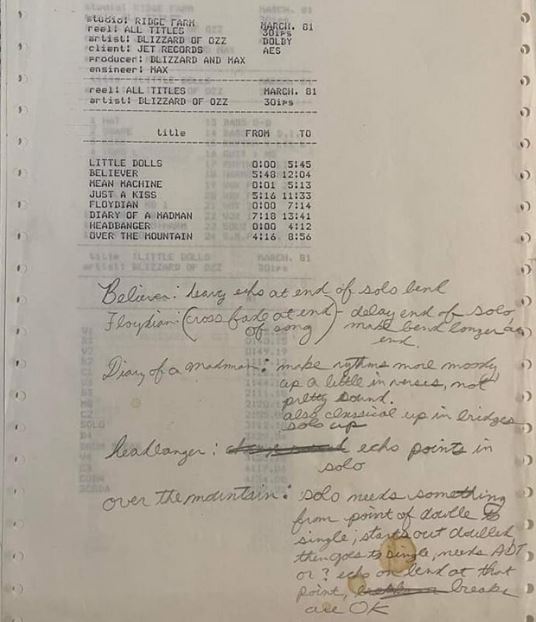 studio: RIDGE FARM MARCH. 81
reel: ALL TITLES 30ips
artist: BLIZZARD OF OZZ DOLBY
client: JET RECORDS AES
producer: BLIZZARD AND MAX
engineer: MAX
reel: ALL TITLES MARCH. 81
artist: BLIZZARD OF OZZ 30ips
title FROM TO
LITTLE DOLLS 0:00 5:45
BELIEVER 5:48 12:04
MEAN MACHINE 0:01 5:13
JUST A KISS 5:16 11:33
FLOYDIAN 0:00 7:14
DIARY OF A MADMAN 7:18 13:41
HEADBANGER 0:00 4:12
OVER THE MOUNTAIN 4:16 8:56
title : LITTLE DOLLS MARCH. 81
artist: BLIZZARD OF OZZ 30ips
Believer: heavy echo at end of solo bend
Floydian: (cross fade at end of song) - delay end of solo
make bend longer
end.
Diary of a madman: make rythms more moody
up a little in verses, not
pretty sound.
also classical up in bridges
solo up
headbanger: echo points in
solo
over the mountain: solo needs something
from point of double to
single; starts out doubled
then goes to single, needs ADT
or? echo on bend at that
point, breaks
are OK